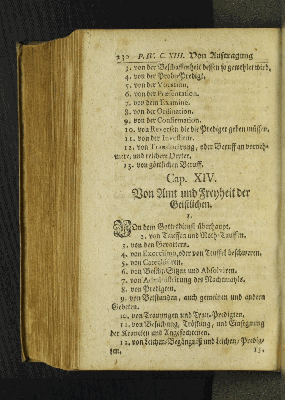 230 P. IV. C. XIII. Von Austragung
3. von der Beschaffenheit dessen so gewehlet wird.
4. von der Probe-Predigt.
5. von der Vocation.
6. von der Præsentation.
7. von dem Examine.
8. von der Ordination.
9. von der Confirmation.
10. von Reversen die die Prediger geben müssen.
11. von der Investitur.
12. von oder Beruff an
und reichere Oerter.
13. von göttlichen Beruff.
Cap. XIV.
Von Amt und Freyheit der
Geistlichen.
1.
Von dem Gottesdienst überhaupt.
2. von Tauffen und Noth-Tauffen.
3. von den Gevattern.
4. von Exorcismo, oder von Teuffel beschweren.
5. von Catechisiren.
6. von Beicht-Sitzen und Absolviren.
7. von Administrirung des Nachtmahls.
8. von Predigten.
9. von Betstunden, auch gemeinen und andern
Gebeten.
10. von Trauungen und Trau-Predigten.
11. von Besuchung, Tröstung, und Einsegnung
der Krancken und Angefochtenen.
12. von Leichen-Begängnüß und Leichen-Predig-
ten. 13.